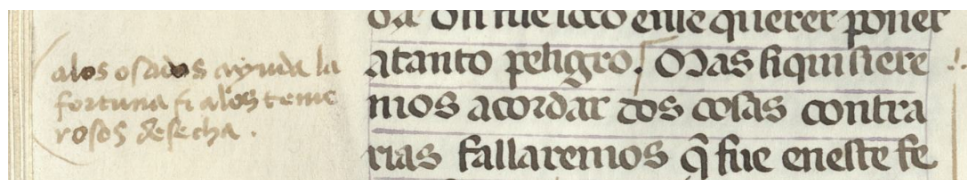 alos osados ayuda la
fortuna & alos teme
rosos desecha.
da. On fue loco enle querer poner
atanto peligro. Mas si quisiere
mos acordar dos cosas contra
rias fallaremos q̃ fue eneste fe